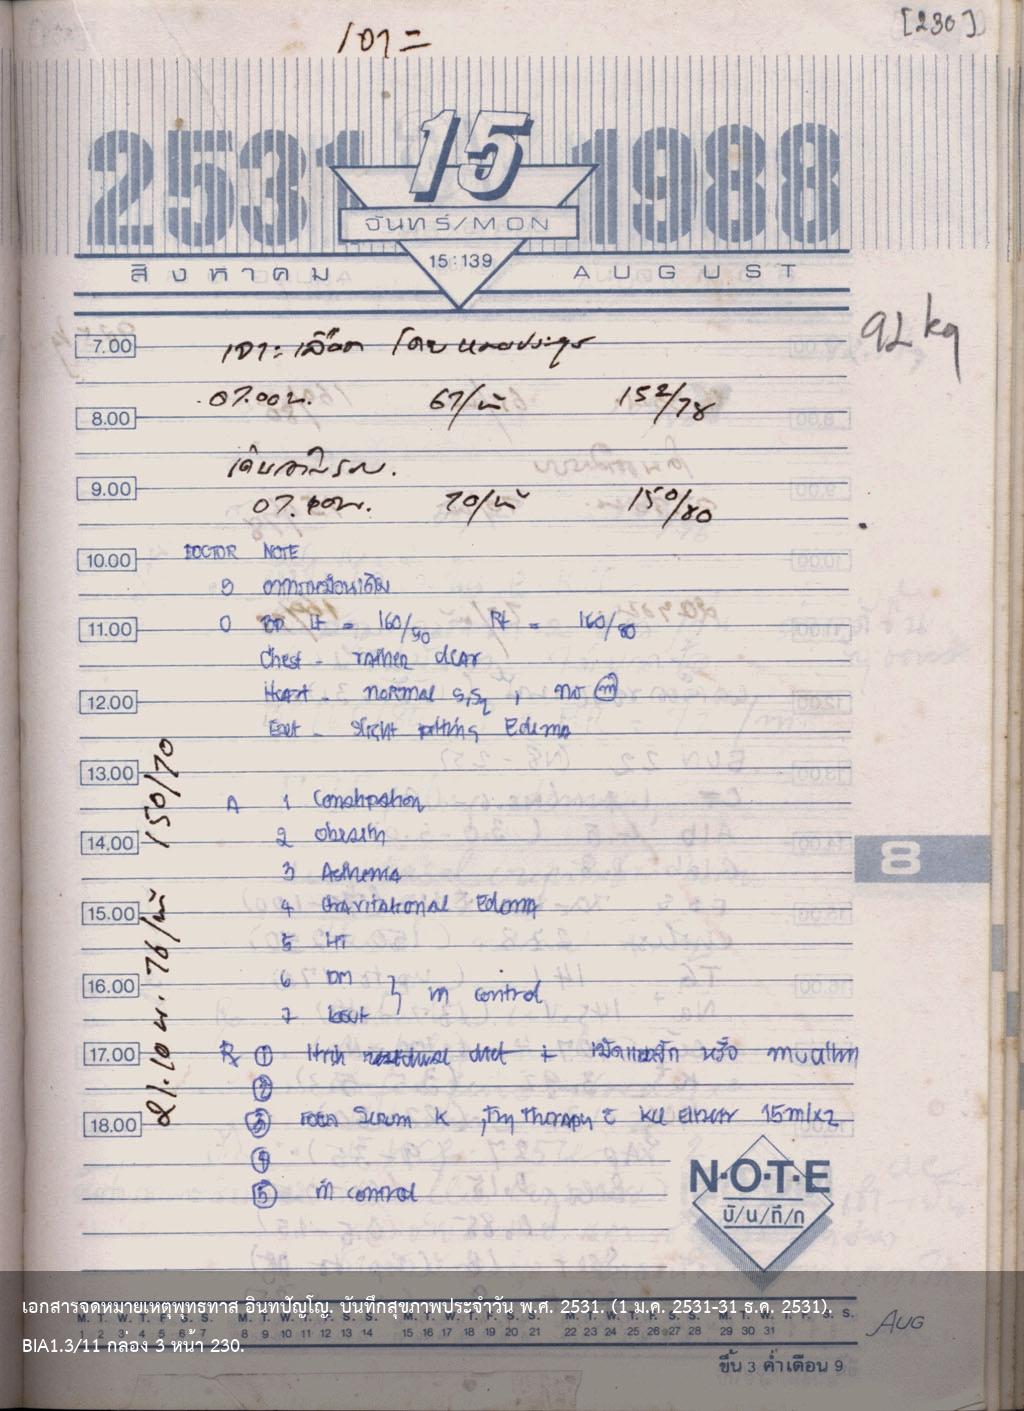 [230]
เจาะ
2531 15 1988
จันทร์/MON
15:139
สิงหาคม AUGUST
92 kg
7.00 เจาะเลือด โดย หมอประยูร
07.00น. 67/น 152/78
8.00
9.00
07.40น. 70/น 150/80
10.00 DOCTOR NOTE
S อาการเหมือนเดิม
11.00 O BP Lt = 160/90 Rt = 160/80
Chest - rather clear
12.00 Heart - normal S1S2, no m
Ext - slight pitting Edema
13.00
A 1 Constipation
14.00 2 Obesity
3 Asthma
15.00 4 Gravitational Edema
5 HT
16.00 6 DM } in control
7 Gout
17.00 Rx ① High residual diet + เม็ดแมงลัก หรือ mucilin
②
18.00 ③ Serum K, Try therapy c KCl Elixir 15mlx2
④
⑤ in control
21.10 น. 76/น 150/70
8
N·O·T·E
บั/น/ทึ/ก
เอกสารจดหมายเหตุพุทธทาส อินทปัญโญ. บันทึกสุขภาพประจำวัน พ.ศ. 2531. (1 ม.ค. 2531-31 ธ.ค. 2531).
M. T. W. T. F. S. S. M. T. W. T. F. S. S. M. T. W. T. F. S. S. M. T. W. T. F. S. S. M. T. W. T. F. S. S.
1 2 3 4 5 6 7 8 9 10 11 12 13 14 15 16 17 18 19 20 21 22 23 24 25 26 27 28 29 30 31
AUG
BIA1.3/11 กล่อง 3 หน้า 230.
ขึ้น 3 ค่ำเดือน 9